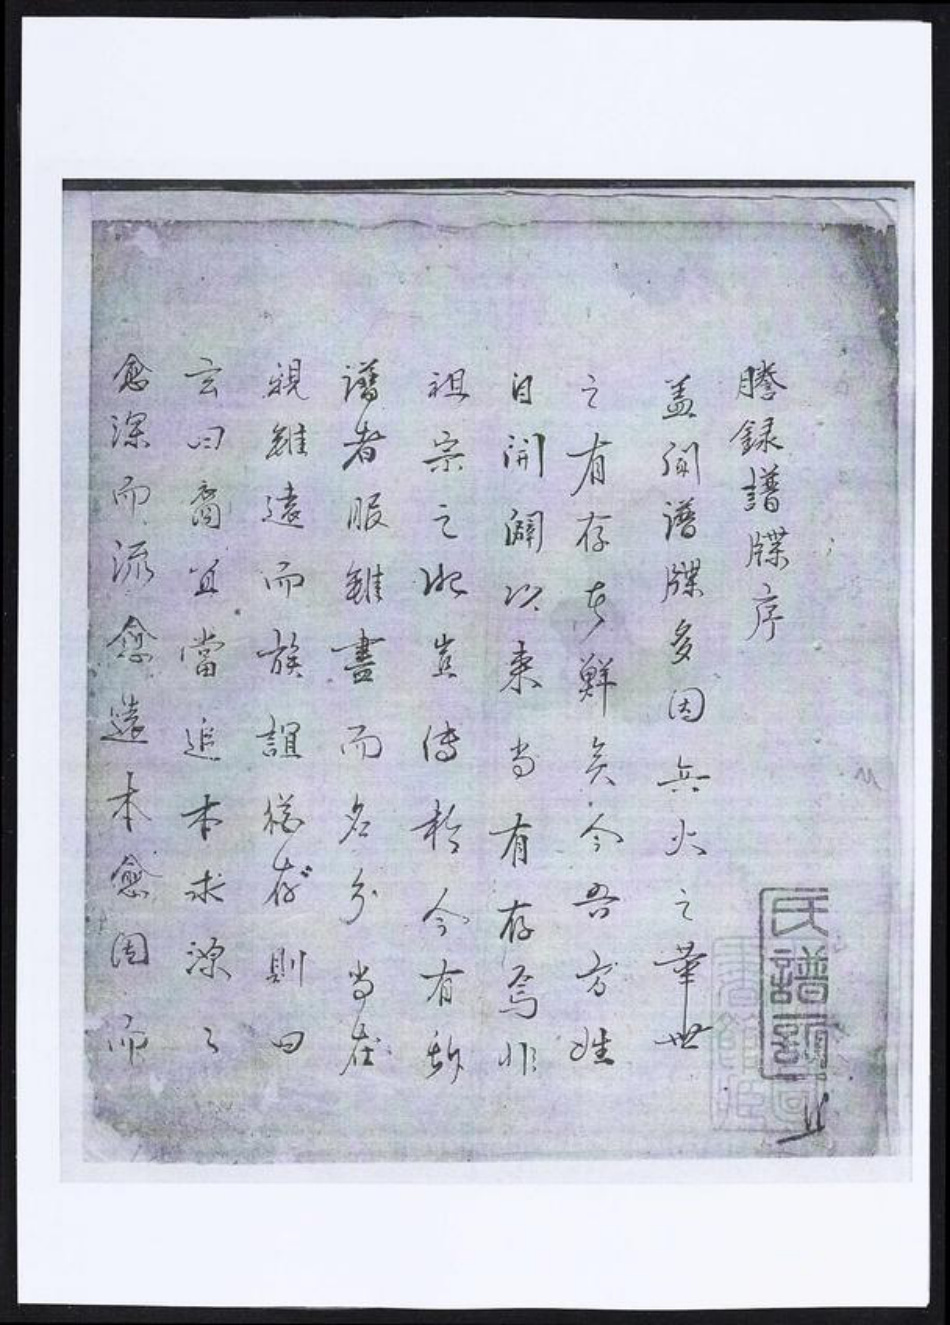 謄録譜牒序
盖聞譜牒多因兵火之華世
之有存者鮮矣今吾方姓
自開闢以来尚有存焉非
祖宗之昭豈傳於今有斯
譜者服雖盡而名分尚在
親雖遠而族誼猶存則曰
玄曰裔宜當追本求源々
愈深而流愈遠本愈固而
氏譜